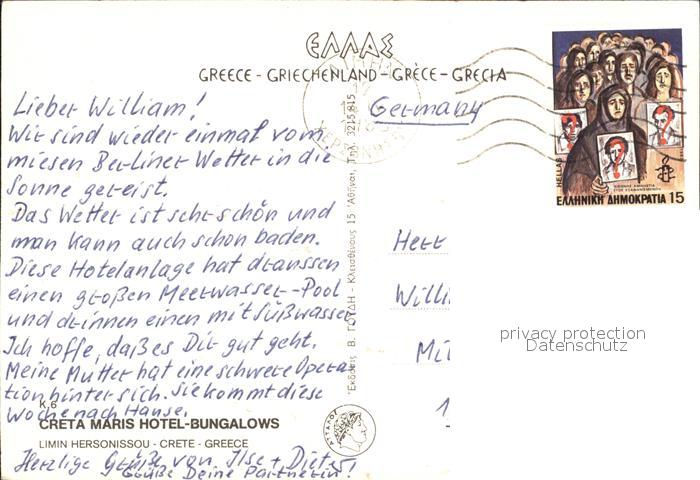 ΕΛΛΑΣ
GREECE - GRIECHENLAND - GRÈCE - GRECIA
Lieber William!
Wir sind wieder einmal vom
miesen Berliner Wetter in die
Sonne gereist.
Das Wetter ist sehr schön und
man kann auch schon baden.
Diese Hotelanlage hat draussen
einen großen Meerwasser-Pool
und drinnen einen mit Süßwasser
Ich hoffe, daß es Dir gut geht.
Meine Mutter hat eine schwere Opera-
tion hinter sich. Sie kommt diese
Woche nach Hause.
K.6
CRETA MARIS HOTEL-BUNGALOWS
LIMIN HERSONISSOU - CRETE - GREECE
Herzlige Grüße von Ilse + Dieter!
Grüße Deine Partnerin!
Ἐκδόσεις Β. ΓΟΥΔΗ - Κλεισθένους 15 Ἀθῆναι, Τηλ. 3215.815
ΑΤΤΑΛΟΣ
Germany
Herr
Willi
Mi
1
HELLAS
ΔΙΕΘΝΗΣ ΑΜΝΗΣΤΙΑ
ΕΛΛΗΝΙΚΗ ΔΗΜΟΚΡΑΤΙΑ 15
privacy protection
Datenschutz